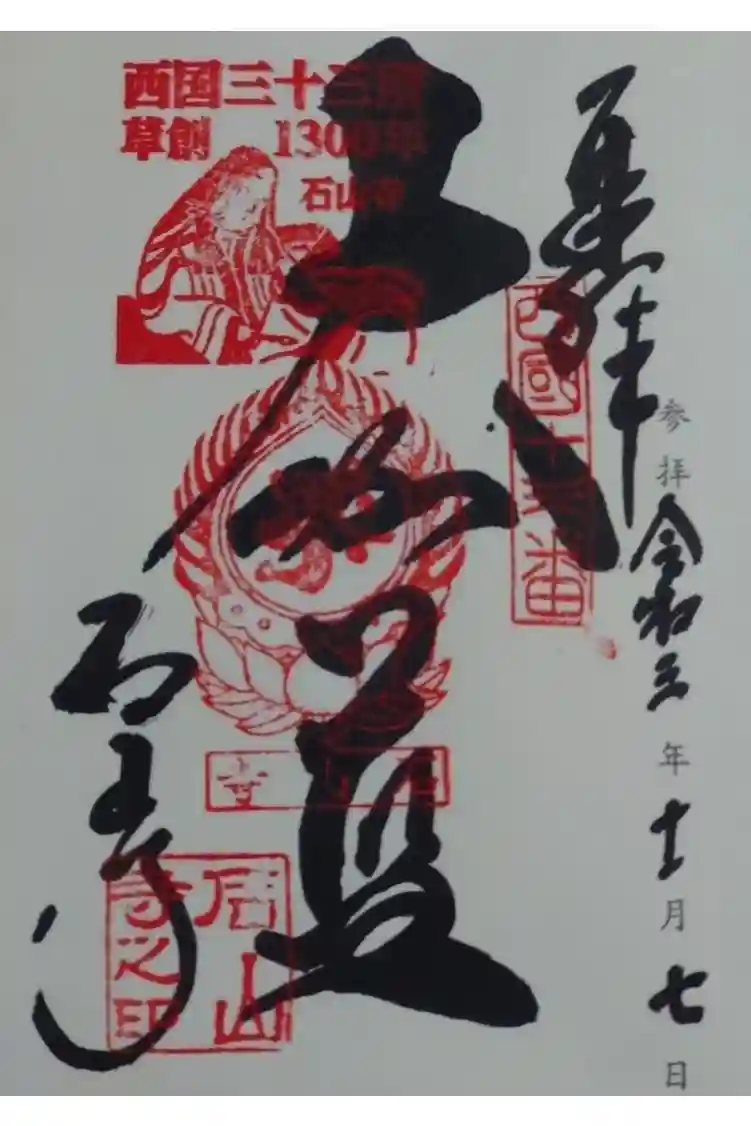 奉拝
西國十三番
参拝 令和三年十一月七日
大伽藍
西国三十三所
草創 1300年
石山寺
石山寺
石山寺
石山寺之印